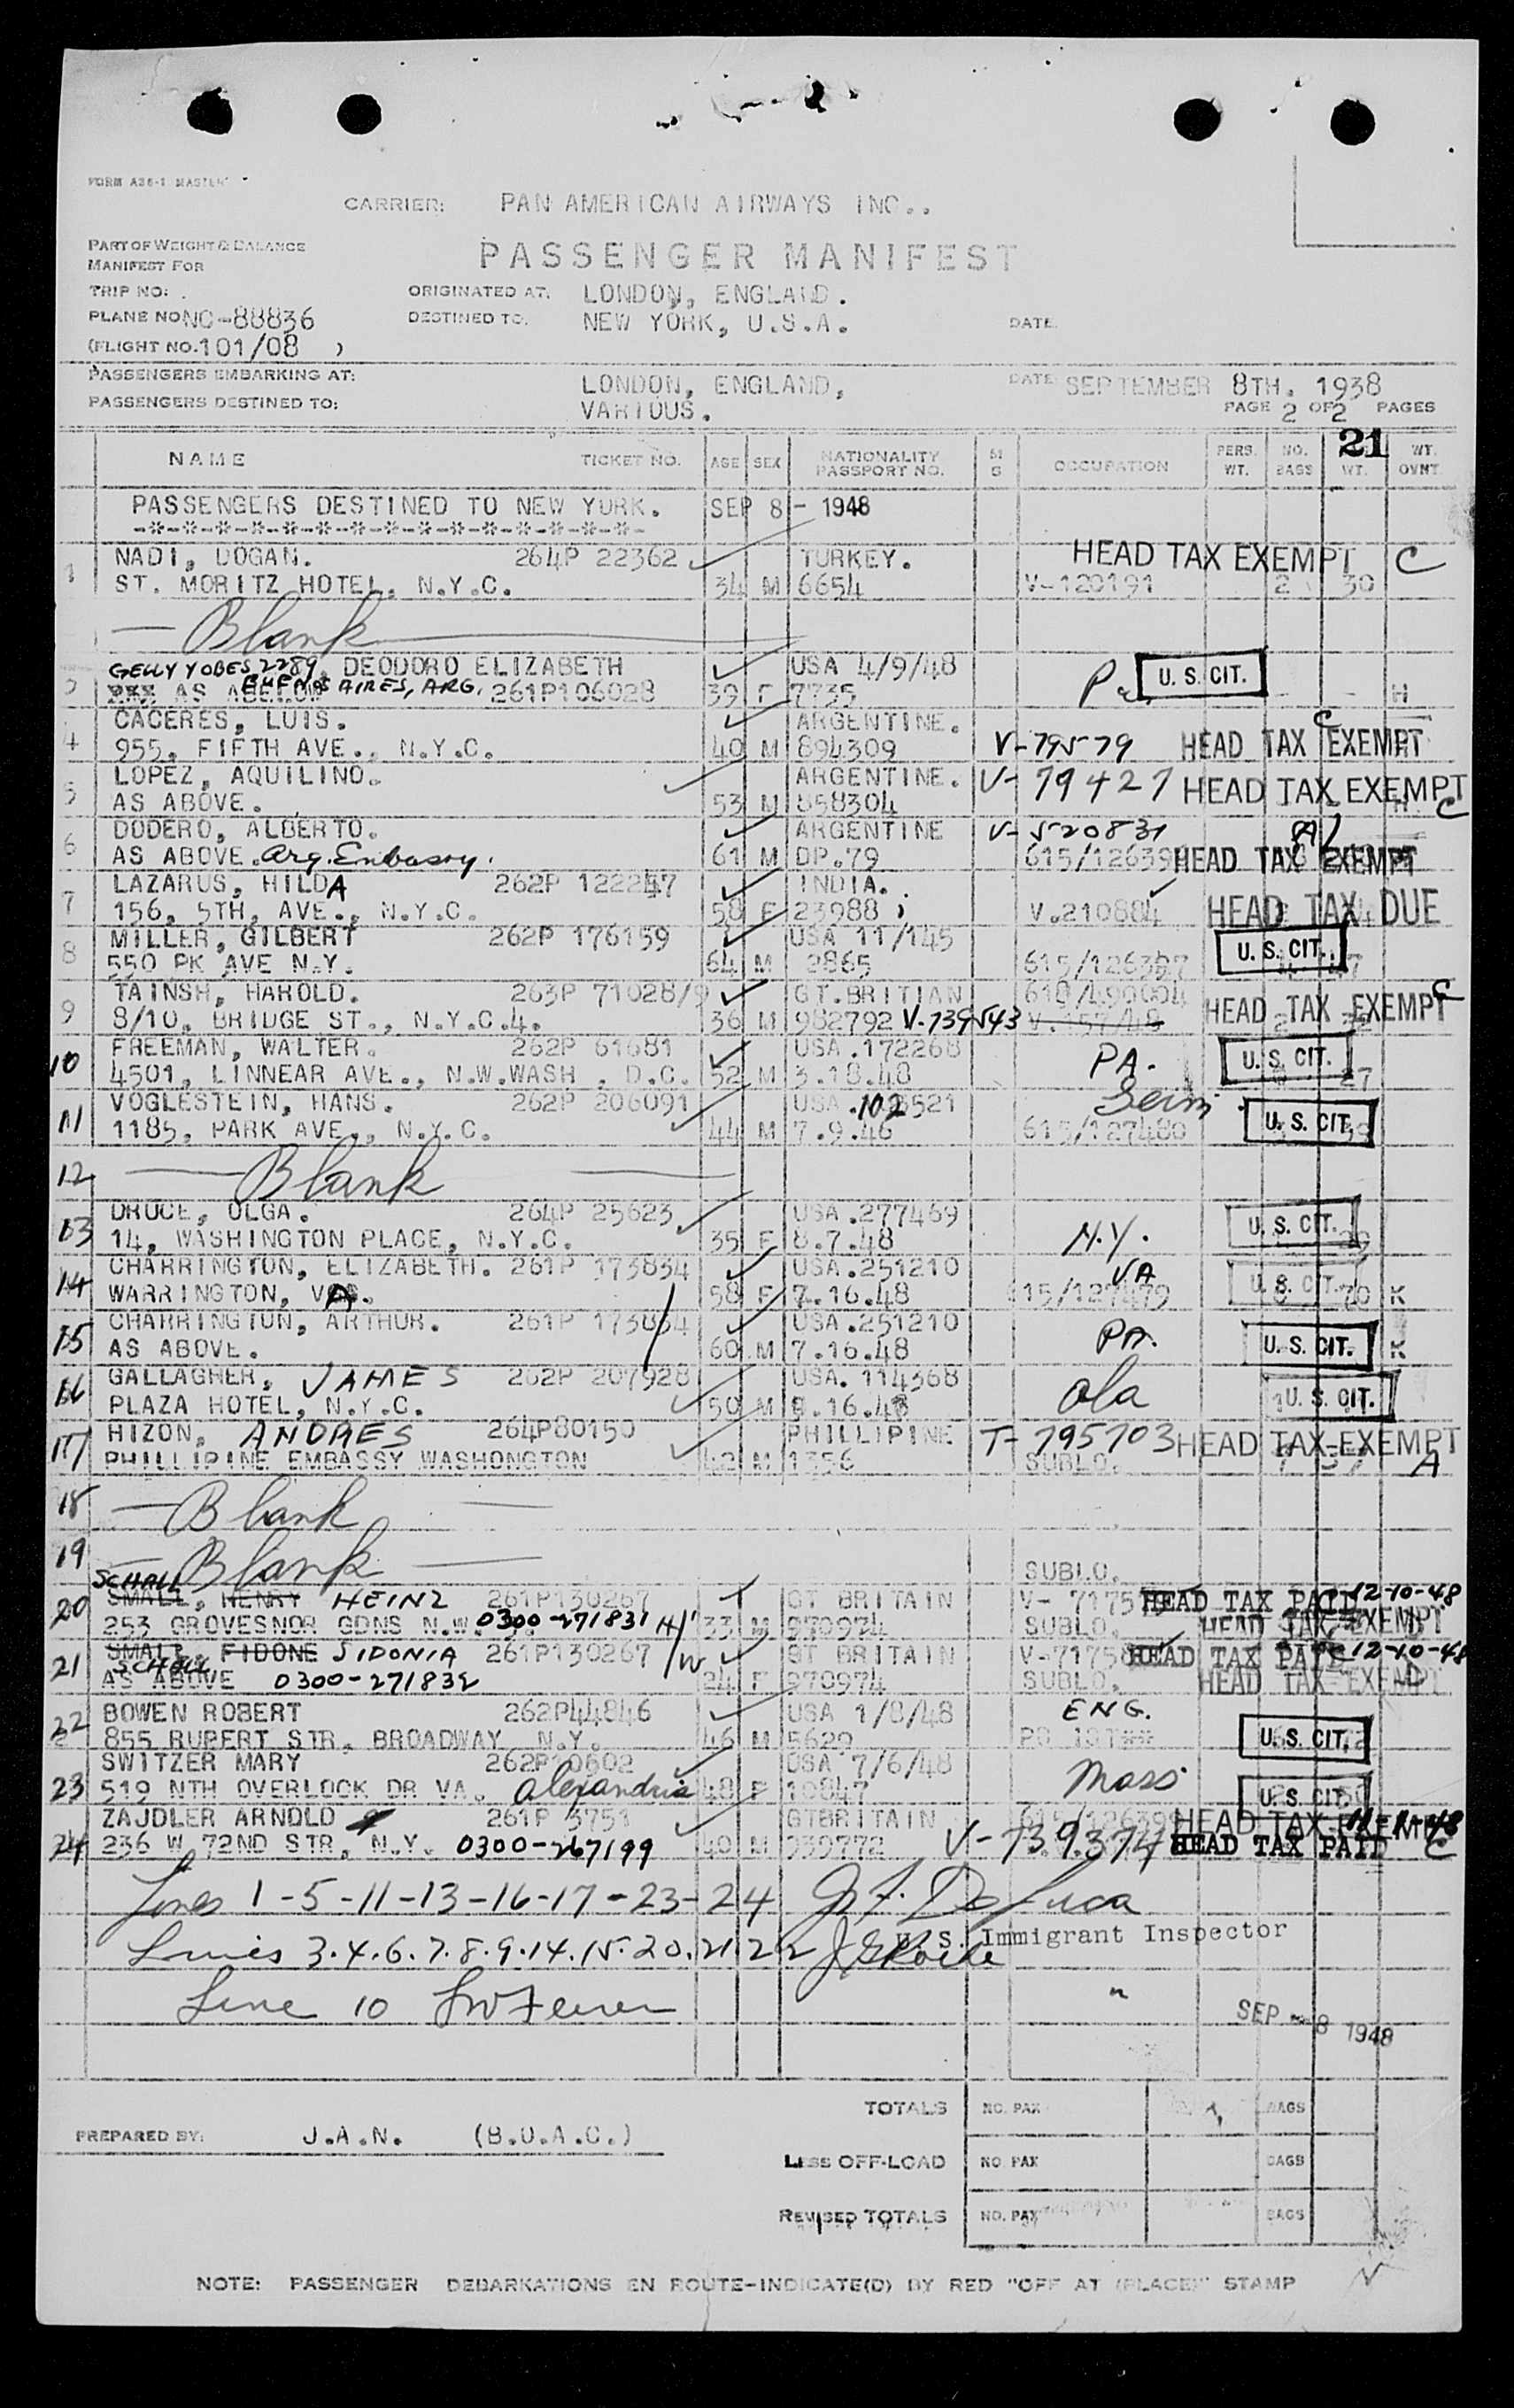 FORM A36-1 MASTER
CARRIER: PAN AMERICAN AIRWAYS INC..
PART OF WEIGHT & BALANCE
MANIFEST FOR
PASSENGER MANIFEST
TRIP NO: .
ORIGINATED AT. LONDON, ENGLAND.
PLANE NO NC-88836
DESTINED TO. NEW YORK, U.S.A.
DATE
(FLIGHT NO. 101/08 )
PASSENGERS EMBARKING AT: LONDON, ENGLAND,
DATE SEPTEMBER 8TH. 1938
PASSENGERS DESTINED TO: VARIOUS.
PAGE 2 OF 2 PAGES
21
NAME TICKET NO. AGE SEX NATIONALITY PASSPORT NO. OCCUPATION PERS. WT. NO. BAGS WT. WT. OVNT
PASSENGERS DESTINED TO NEW YORK. SEP 8 - 1948
-*-*-*-*-*-*-*-*-*-*-*-*-*-*-*-
1 NADI, DOGAN. 264P 22362 TURKEY. HEAD TAX EXEMPT C
ST. MORITZ HOTEL, N.Y.C. 34 M 6654 V-120191 2 30
Blank
GELLY YOBES 2289, DEODORO ELIZABETH USA 4/9/48
BUENOS AIRES, ARG. 261P106028 39 F 7735 Pa. U. S. CIT. H
CACERES, LUIS. ARGENTINE. C
4 955, FIFTH AVE., N.Y.C. 40 M 894309 V-79579 HEAD TAX EXEMPT
LOPEZ, AQUILINO. ARGENTINE. V-79427 HEAD TAX EXEMPT
5 AS ABOVE. 53 M 858304 C
DODERO, ALBERTO. ARGENTINE V-520831 A/
6 AS ABOVE. Arg. Embassy. 61 M DP.79 615/126399 HEAD TAX EXEMPT
LAZARUS, HILDA 262P 122247 INDIA.
7 156, 5TH, AVE., N.Y.C. 58 F 23988 V.210884 HEAD TAX DUE
MILLER, GILBERT 262P 176159 USA 11/145
8 550 PK AVE N.Y. 64 M 2865 615/126387 U. S. CIT.
TAINSH, HAROLD. 263P 71028/9 GT.BRITIAN 610/490004 C
9 8/10, BRIDGE ST., N.Y.C.4. 36 M 982792 V-739543 V.157/48 HEAD TAX EXEMPT
FREEMAN, WALTER. 262P 61681 USA.172268
10 4501, LINNEAR AVE., N.W.WASH , D.C. 52 M 3.18.48 PA. U. S. CIT. 27
VOGLESTEIN, HANS. 262P 206091 USA.102521
11 1185, PARK AVE., N.Y.C. 44 M 7.9.46 615/127480 U. S. CIT.
12 Blank
DRUCE, OLGA. 264P 25623 USA.277469
13 14, WASHINGTON PLACE, N.Y.C. 35 F 8.7.48 N.Y. U. S. CIT.
CHARRINGTON, ELIZABETH. 261P 173834 USA.251210 VA
14 WARRINGTON, VA. 58 F 7.16.48 615/127479 U. S. CIT. 70 K
CHARRINGTON, ARTHUR. 261P 173834 USA.251210
15 AS ABOVE. 60 M 7.16.48 PA. U. S. CIT. K
GALLAGHER, JAMES 262P 207928 USA. 114368
16 PLAZA HOTEL, N.Y.C. 50 M 8.16.48 Ola U. S. CIT.
HIZON, ANDRES 264P80150 PHILLIPINE T-795703 HEAD TAX EXEMPT
17 PHILLIPINE EMBASSY WASHONGTON 42 M 1356 SUBLO. A
18 Blank
19 Blank
SUBLO.
SCHALL
20 SMALL, HENRY HEINZ 261P130267 GT BRITAIN V-71757 HEAD TAX PAID 12-10-48
253 GROVESNOR GDNS N.W. 0300-271831 H/ 33 M 970974 SUBLO. HEAD TAX EXEMPT
21 SMALL, FIDONE SIDONIA 261P130267 /W GT BRITAIN V-7175 HEAD TAX PAID 12-10-48
SCHALL
AS ABOVE 0300-271832 24 F 970974 SUBLO. HEAD TAX EXEMPT
BOWEN ROBERT 262P44846 USA 1/8/48 ENG.
22 855 RUPERT STR, BROADWAY N.Y. 46 M 5629 U. S. CIT.
SWITZER MARY 262P10602 USA 7/6/48
23 519 NTH OVERLOOK DR VA. Alexandria 48 F 10847 Mass U. S. CIT.
ZAJDLER ARNOLD 261P 3751 GTBRITAIN 615/126399 HEAD TAX
24 236 W 72ND STR, N.Y. 0300-267199 40 M 939772 V-739374 HEAD TAX PAID C
Lines 1-5-11-13-16-17-23-24 J.F. DeLuca
U. S. Immigrant Inspector
Lines 3.4.6.7.8.9.14.15.20.21.22
Line 10
"
SEP -8 1948
TOTALS NO. PAX BAGS
PREPARED BY: J.A.N. (B.O.A.C.)
LESS OFF-LOAD NO. PAX BAGS
REVISED TOTALS NO. PAX BAGS
NOTE: PASSENGER DEBARKATIONS EN ROUTE-INDICATE(D) BY RED "OFF AT (PLACE)" STAMP